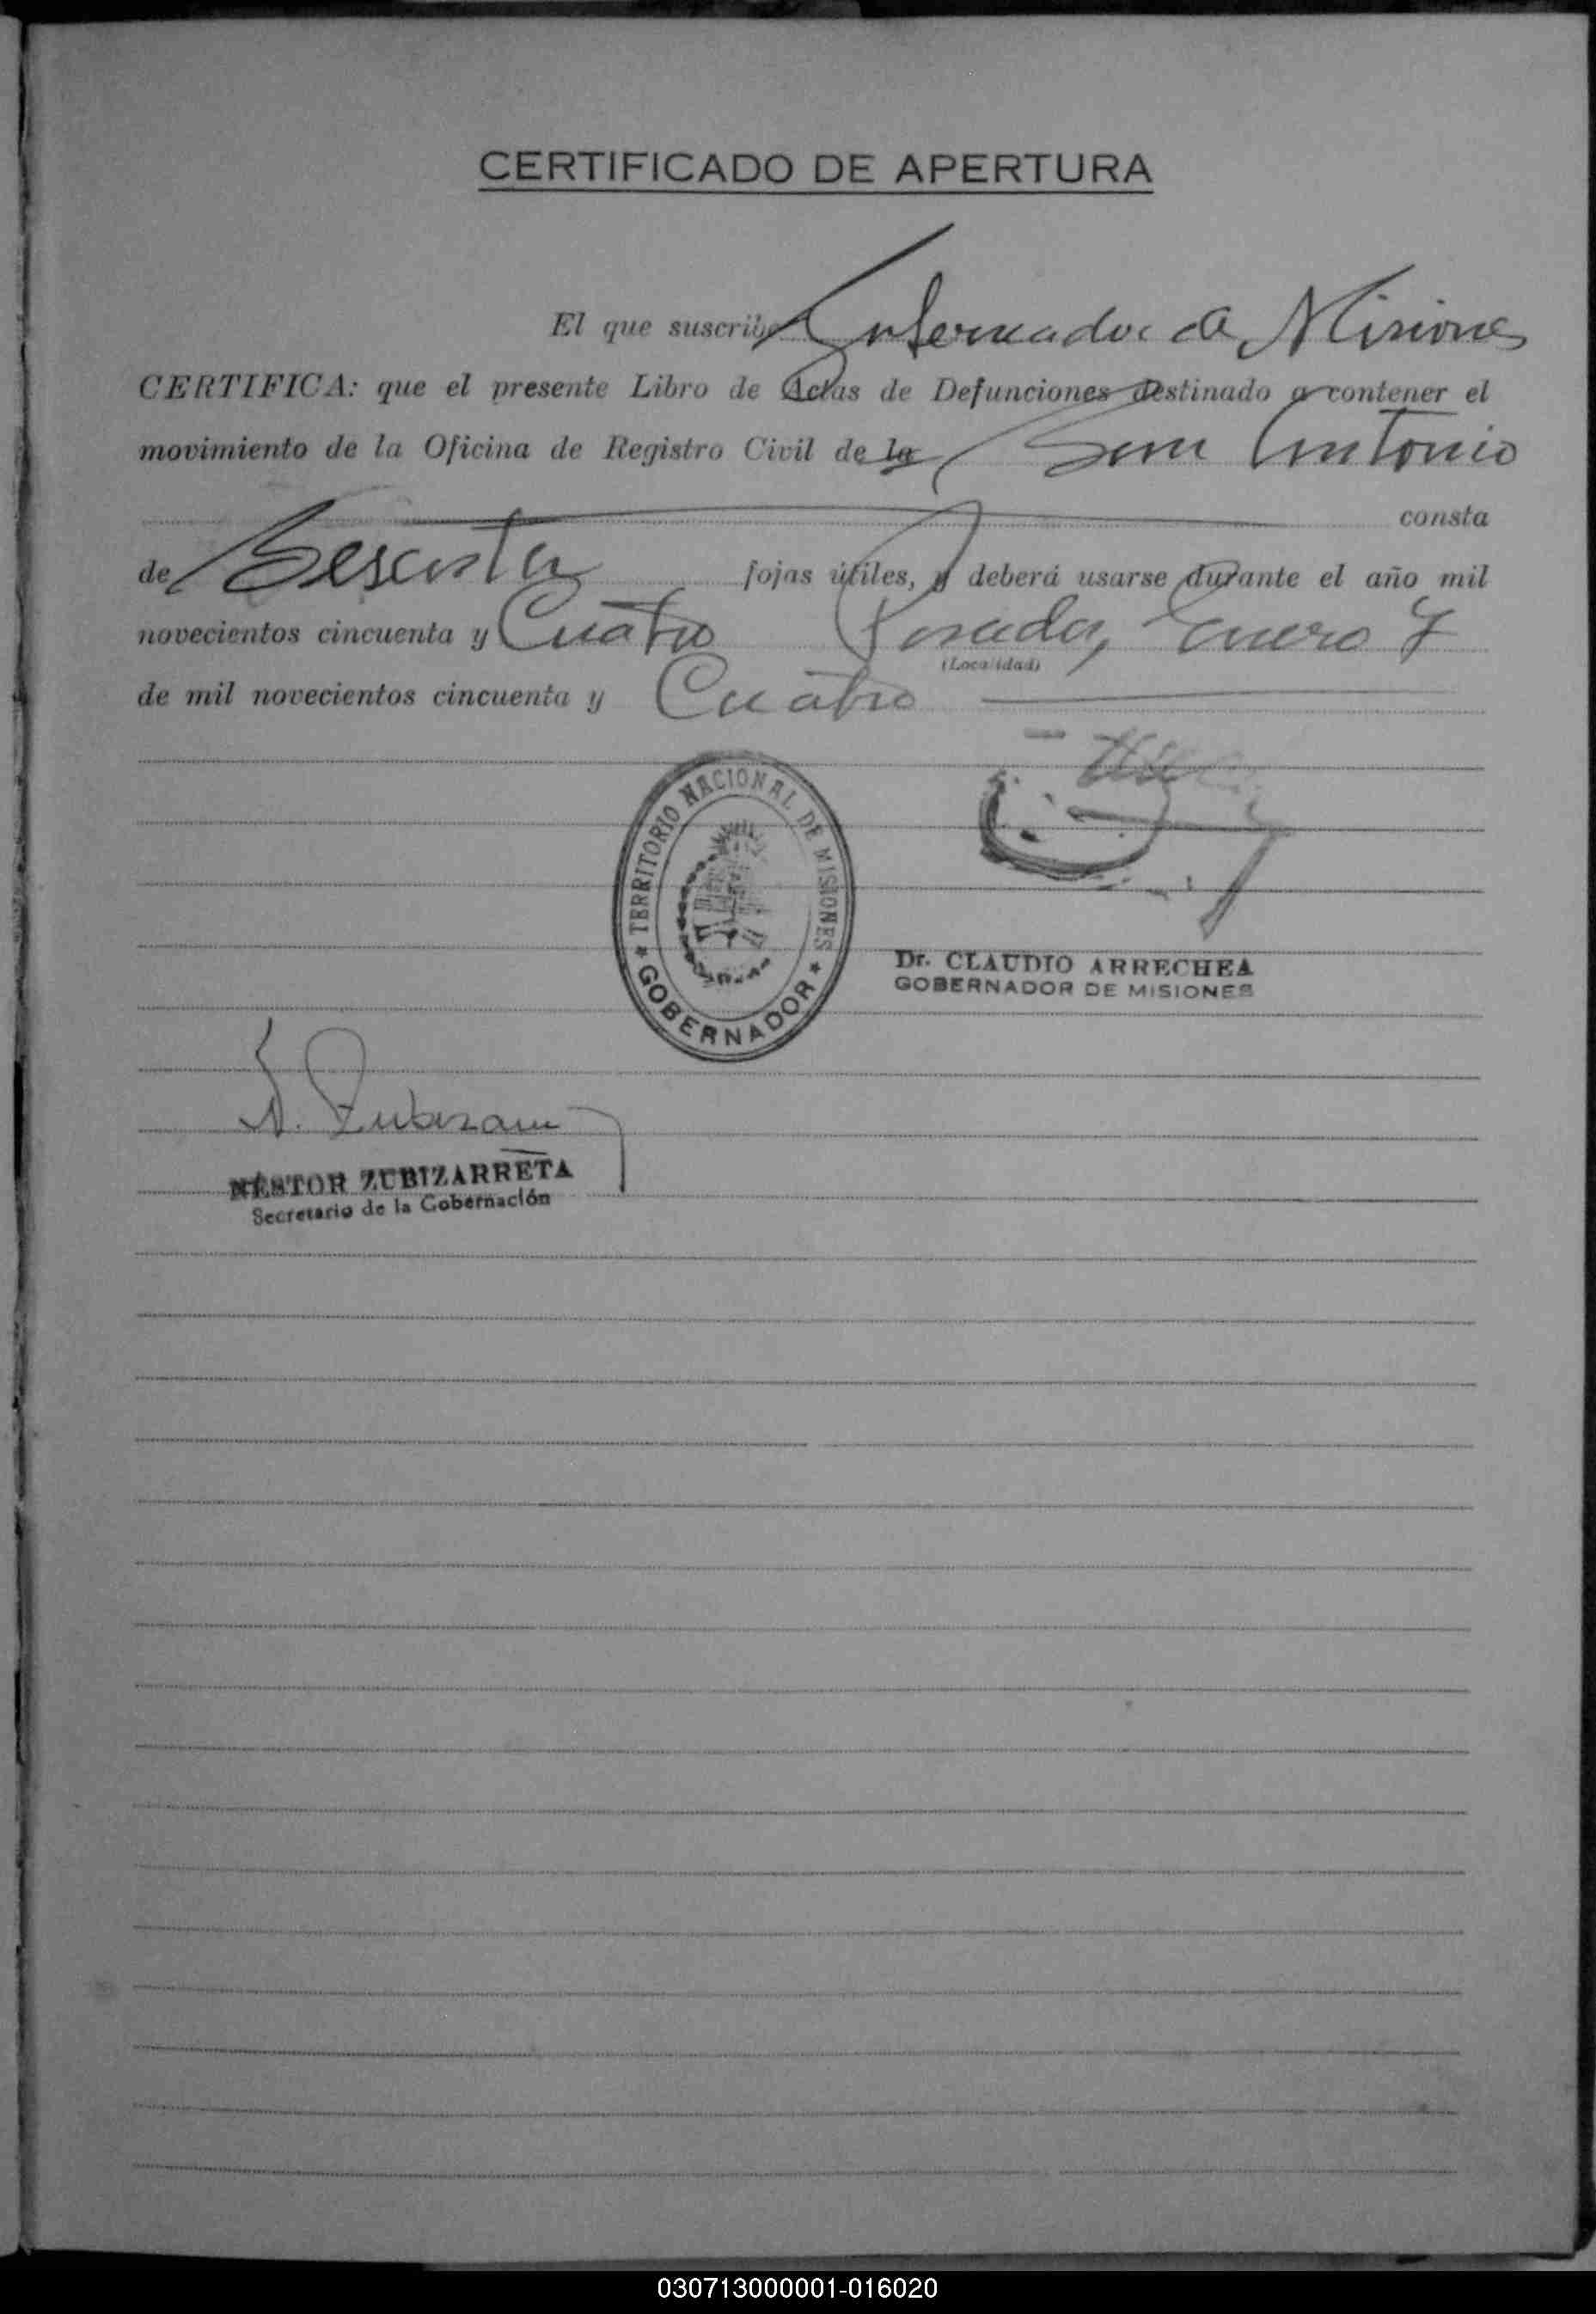 CERTIFICADO DE APERTURA
El que suscribe Gobernador de Misiones
CERTIFICA: que el presente Libro de Actas de Defunciones destinado a contener el
movimiento de la Oficina de Registro Civil de la San Antonio
consta
de Sesenta fojas útiles, y deberá usarse durante el año mil
novecientos cincuenta y Cuatro Posadas, Enero 7
(Localidad)
de mil novecientos cincuenta y Cuatro
TERRITORIO NACIONAL DE MISIONES
GOBERNADOR
Dr. CLAUDIO ARRECHEA
GOBERNADOR DE MISIONES
N. Zubizarreta
NÉSTOR ZUBIZARRETA
Secretario de la Gobernación
030713000001-016020